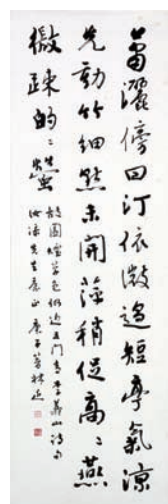 蕭灑傍回汀依微過短亭氣涼
先動竹細點未開萍稍促高〻燕
微疎的〻螢
故園煙草色仍近五門青李義山詩句
先生正